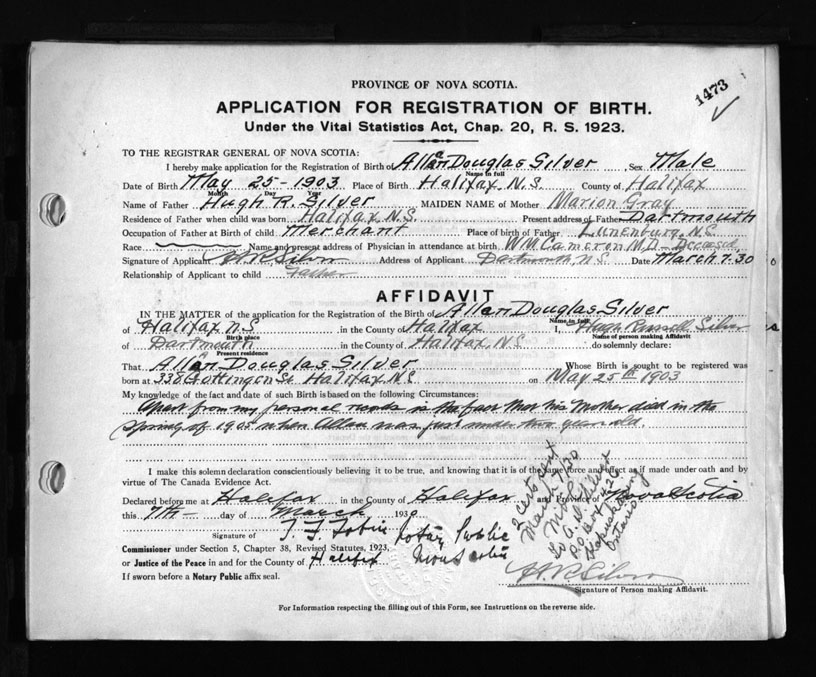 1473
PROVINCE OF NOVA SCOTIA.
APPLICATION FOR REGISTRATION OF BIRTH.
Under the Vital Statistics Act, Chap. 20, R. S. 1923.
TO THE REGISTRAR GENERAL OF NOVA SCOTIA:
I hereby make application for the Registration of Birth of Allan Douglas Silver Sex Male
Name in full
Date of Birth May 25-1903 Place of Birth Halifax, N.S. County of Halifax
Month Day Year
Name of Father Hugh R. Silver MAIDEN NAME of Mother Marion Gray
Residence of Father when child was born Halifax, N.S. Present address of Father Dartmouth
Occupation of Father at Birth of child Merchant Place of birth of Father Lunenburg, N.S.
Race Name and present address of Physician in attendance at birth W M Cameron M.D - Deceased
Signature of Applicant H R Silver Address of Applicant Dartmouth, N.S. Date March 7.30
Relationship of Applicant to child Father
AFFIDAVIT
IN THE MATTER of the application for the Registration of the Birth of Allan Douglas Silver
Name in full
of Halifax N.S in the County of Halifax I, Hugh Russell Silver
Birth place Name of person making Affidavit
of Dartmouth in the County of Halifax N.S do solemnly declare:
Present residence
That Allan Douglas Silver Whose Birth is sought to be registered was
born at 338 Gottingen St Halifax N.S on May 25th 1903
My knowledge of the fact and date of such Birth is based on the following Circumstances:
Apart from my personal records is the fact that his Mother died in the
Spring of 1905 when Allan was just under two years old.
I make this solemn declaration conscientiously believing it to be true, and knowing that it is of the same force and effect as if made under oath and by
virtue of The Canada Evidence Act.
Declared before me at Halifax in the County of Halifax and Province of Nova Scotia
this 7th day of March 1930
Signature of T. F. Tobin Notary Public
Nova Scotia
Commissioner under Section 5, Chapter 38, Revised Statutes, 1923,
or Justice of the Peace in and for the County of Halifax
If sworn before a Notary Public affix seal.
2 certs sent
March 7/30
to A.D. Silver
P.O. Box 420
Ontario
H R Silver
Signature of Person making Affidavit.
For Information respecting the filling out of this Form, see Instructions on the reverse side.